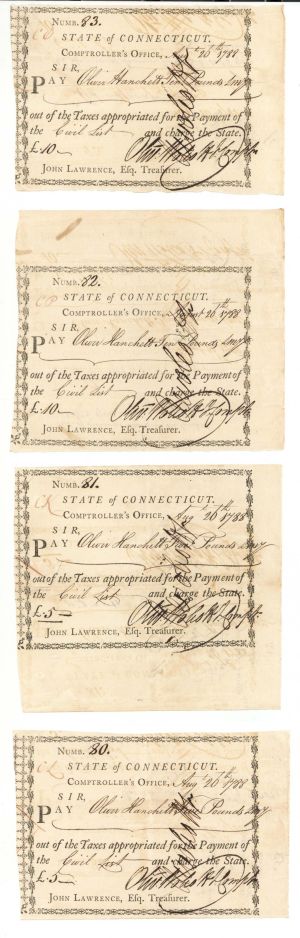 NUMB. 83.
STATE OF CONNECTICUT.
COMPTROLLER'S OFFICE, 26th 1788
SIR,
PAY Oliver Hanchett Ten Pounds
out of the Taxes appropriated for the Payment of
the Civil List and charge the State.
£.10
JOHN LAWRENCE, Esq. Treasurer.
NUMB. 82.
STATE OF CONNECTICUT.
COMPTROLLER'S OFFICE, August 26th 1788
SIR,
PAY Oliver Hanchett Ten Pounds
out of the Taxes appropriated for the Payment of
the Civil List and charge the State.
£.10
JOHN LAWRENCE, Esq. Treasurer.
NUMB. 81.
STATE OF CONNECTICUT.
COMPTROLLER'S OFFICE, Augt 26th 1788
SIR,
PAY Oliver Hanchett Five Pounds
out of the Taxes appropriated for the Payment of
the Civil List and charge the State.
£.5
JOHN LAWRENCE, Esq. Treasurer.
NUMB. 80.
STATE OF CONNECTICUT.
COMPTROLLER'S OFFICE, Augt 26th 1788
SIR,
PAY Oliver Hanchett Five Pounds
out of the Taxes appropriated for the Payment of
the Civil List and charge the State.
£.5
JOHN LAWRENCE, Esq. Treasurer.